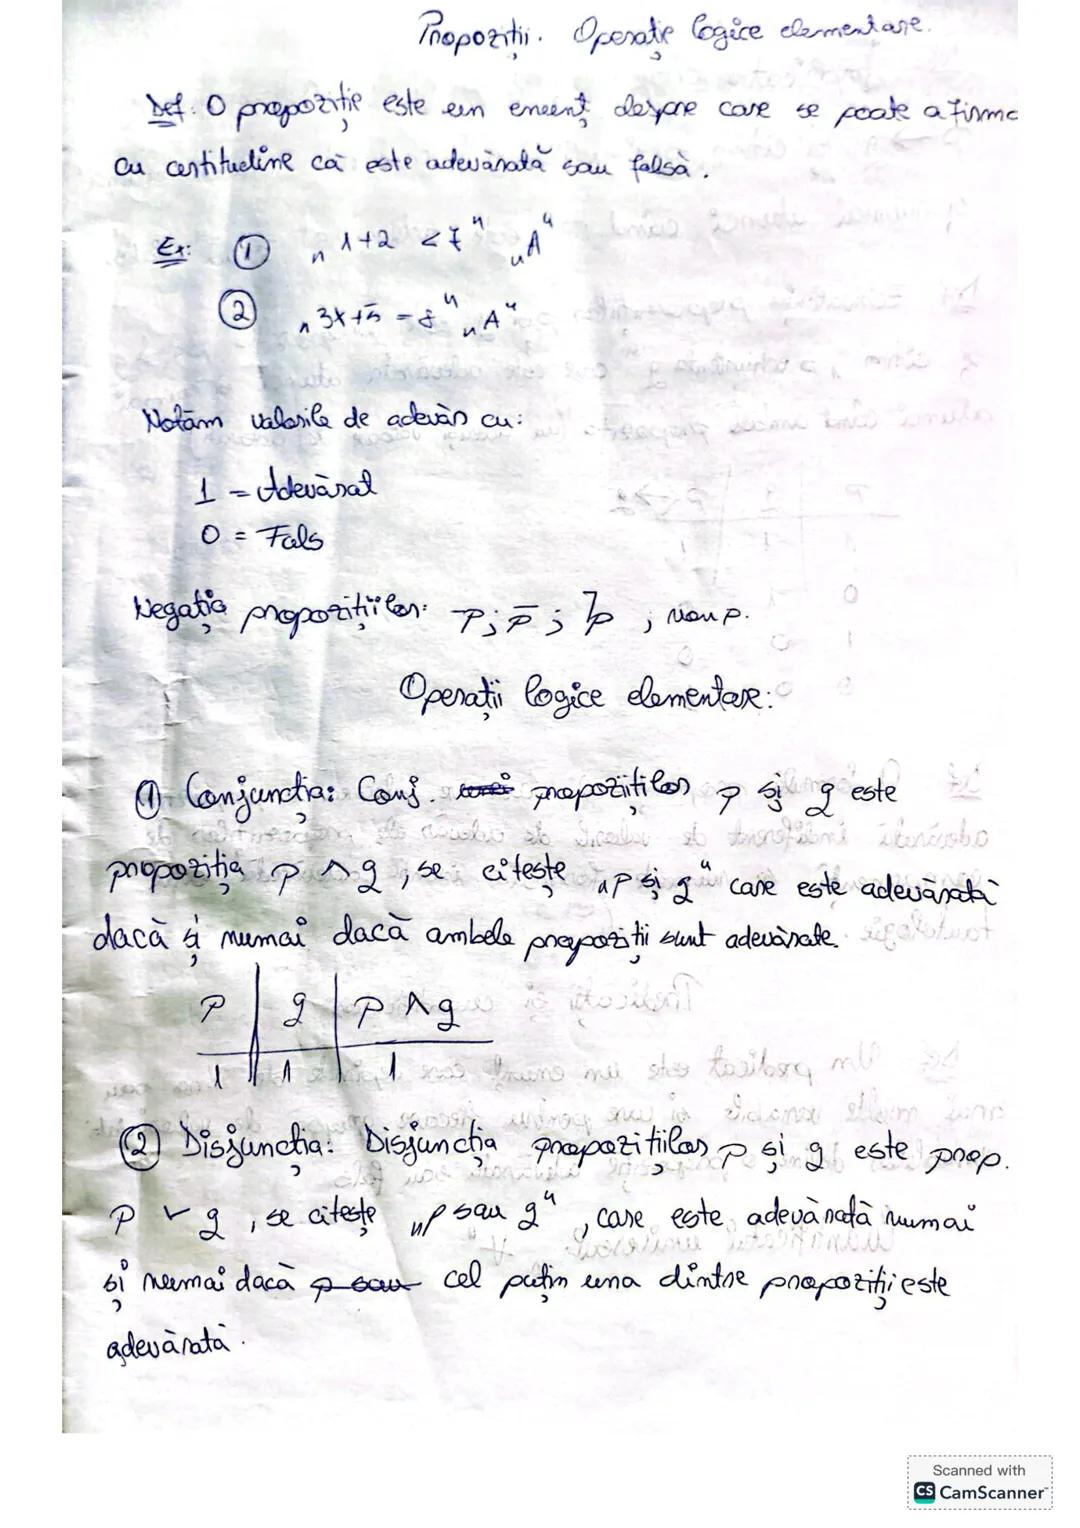 Propoziții. Operații logice elementare.
Def: O propoziție este un enunț despre care se poate afirma
cu certitudine că este adevărată sau falsă.
Ex: ① „1+2 < 7" „A"
② „3x+5 = 8" „A"
Notăm valorile de adevăr cu:
1 = Adevărat
0 = Fals
Negația propozițiilor: p; p̄; ⌉p; non p.
Operații logice elementare:
① Conjuncția: Conj. propozițiilor p și q este
propoziția p ∧ q, se citește „p și q" care este adevărată
dacă și numai dacă ambele propoziții sunt adevărate.
p | q | p ∧ q
1 | 1 | 1
② Disjuncția: Disjuncția propozițiilor p și q este prop.
p ∨ q, se citește „p sau q", care este adevărată numai
și numai dacă p sau cel puțin una dintre propoziții este
adevărată.
Scanned with
CS CamScanner